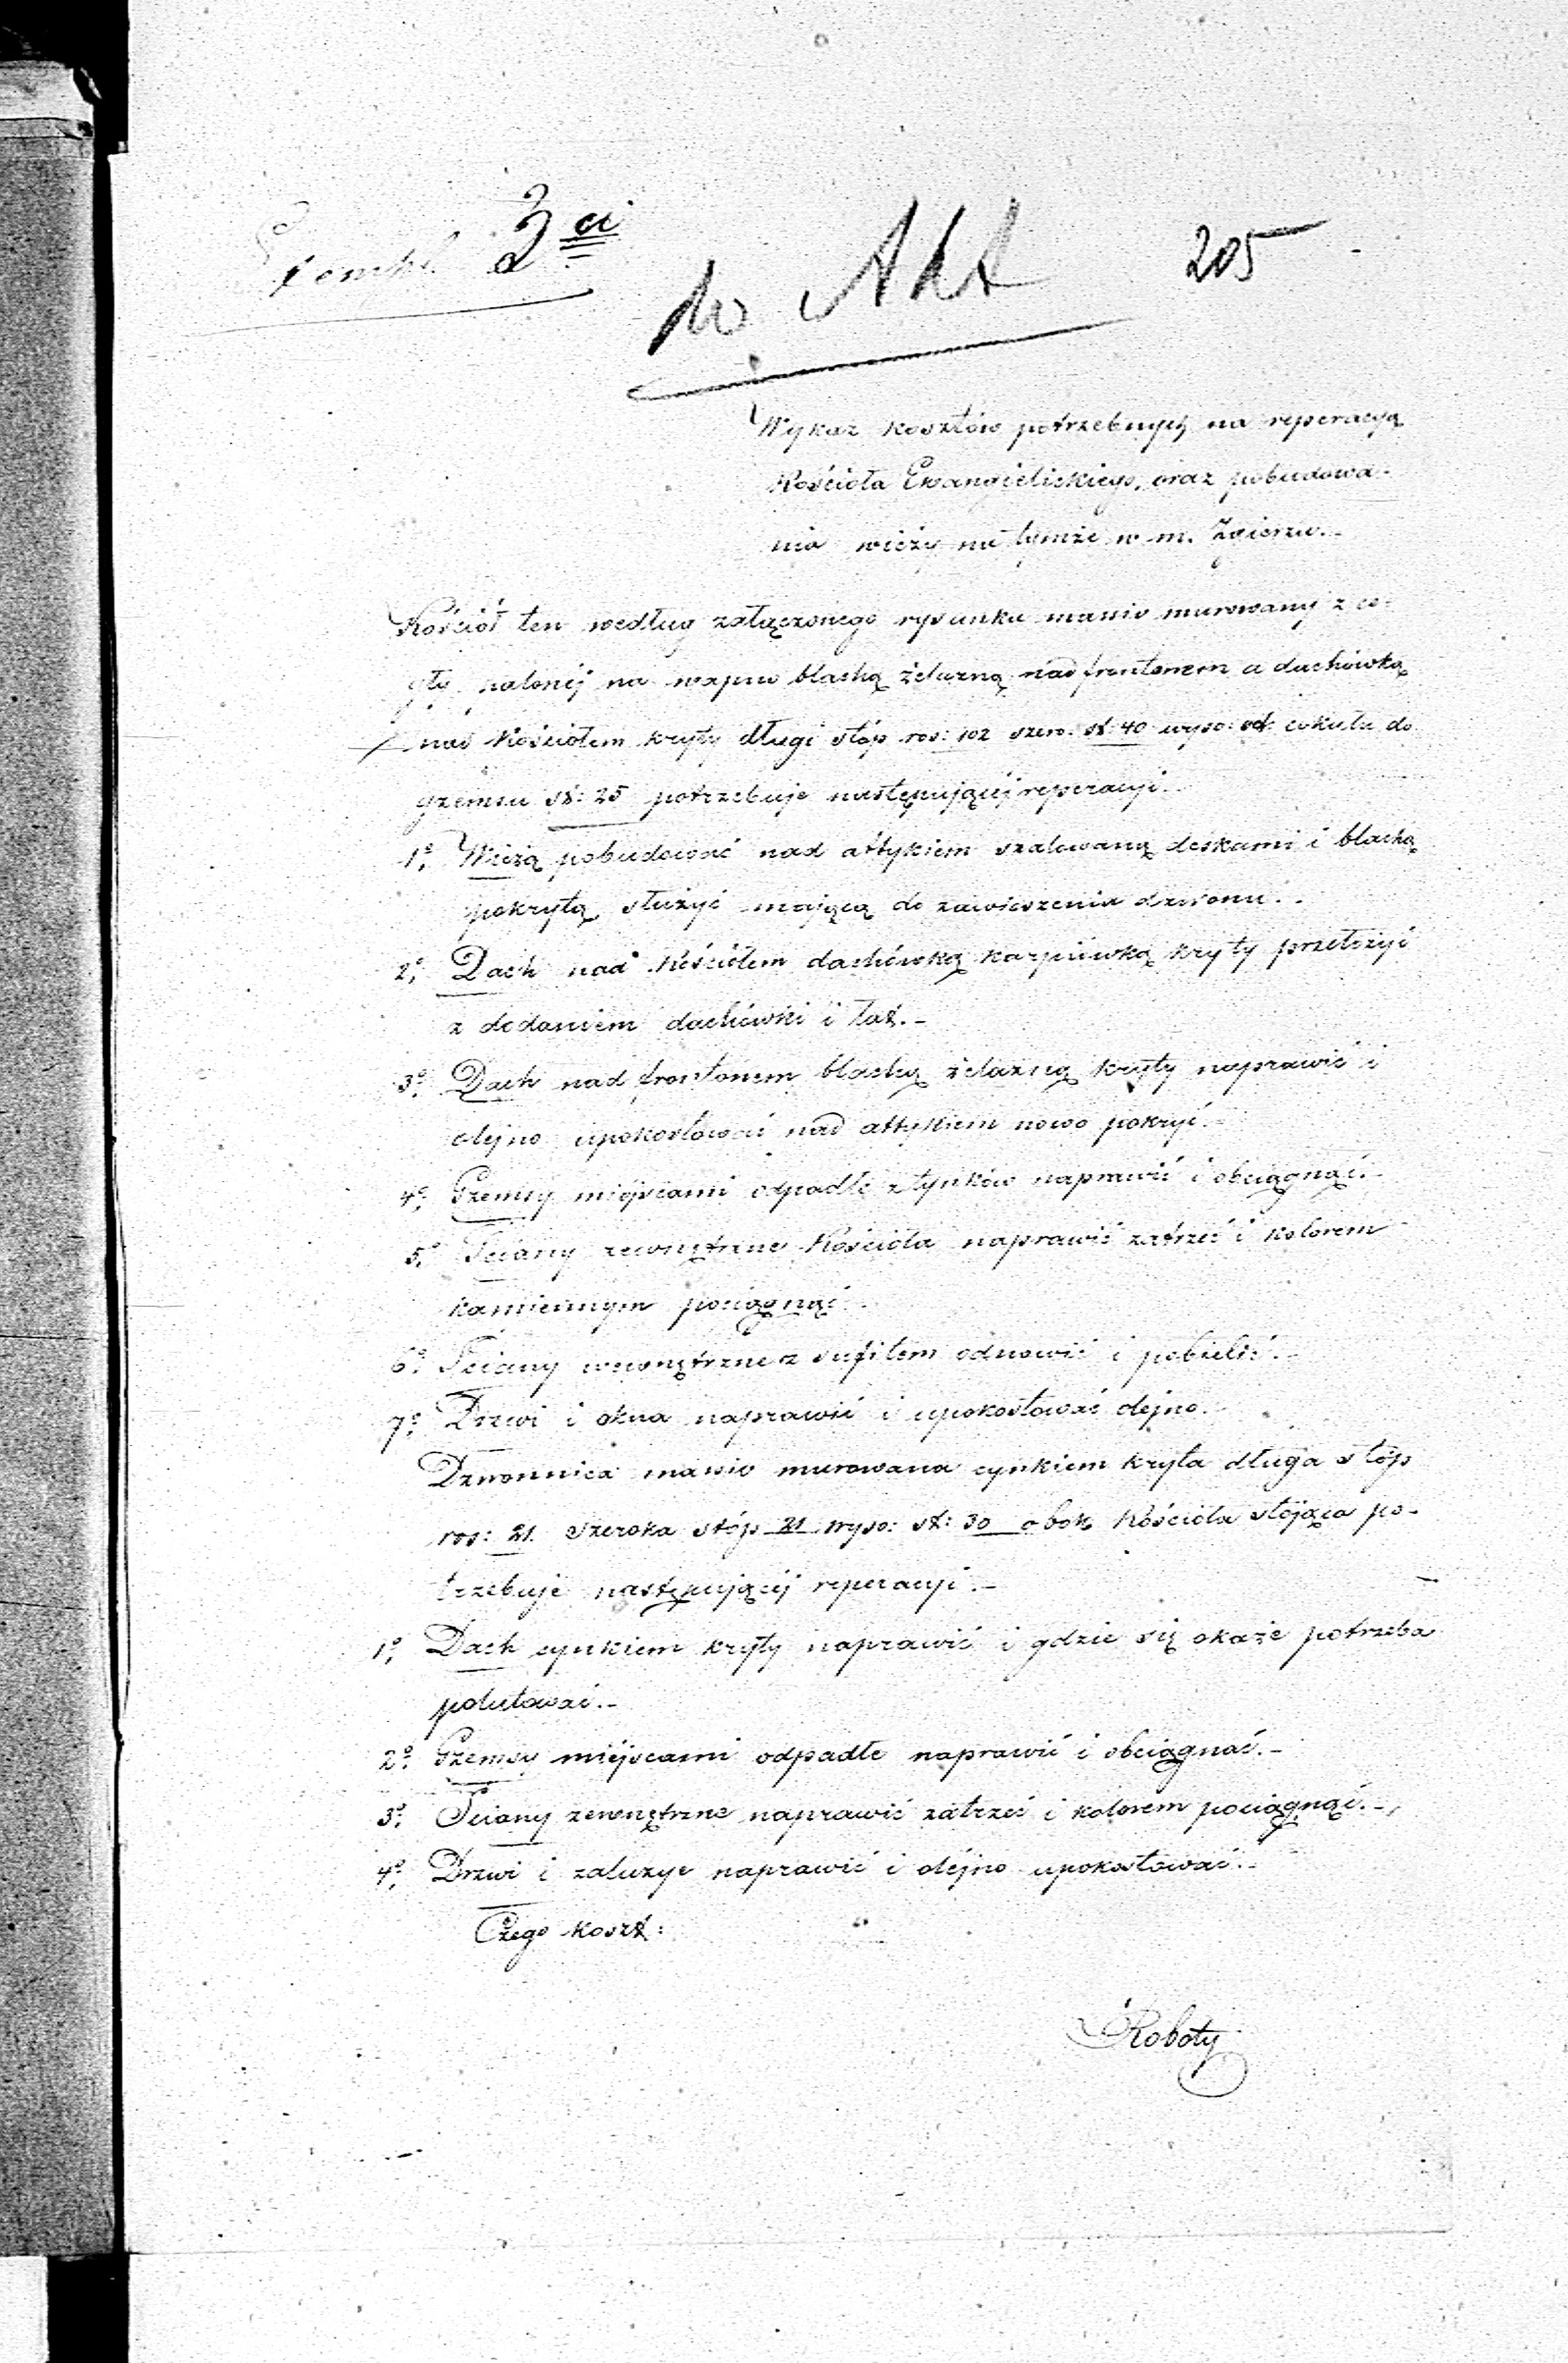 3ci
do Akt
205
Wykaz kosztów potrzebnych na reperacyą
Kościoła Ewangielickiego, oraz pobudowa-
nia wieży na tymże w m. Zgierzu.-
Kościół ten według załączonego rysunku massiv murowany z ce-
gły palonéj na wapno blachą żelazną nad frontonem a dachówką
nad Kościołem kryty długi stóp ros: 102 szero: st: 40 wyso: od cokułu do
gzemsu st: 25 potrzebuje następującéj reperacyi.-
1o, Wieżą pobudować nad attykiem szalowaną deskami i blachą
pokrytą, służyć mającą do zawieszenia dzwonu.-
2o, Dach nad Kościołem dachówką karpiówką kryty przełożyć
z dodaniem dachówki i łat.-
3o, Dach nad frontonem blachą żelazną kryty naprawić i
olejno upokostować nad attykiem nowo pokryć.-
4o, Gzemsy miéjscami odpadłe z tynków naprawić i obciągnąć.-
5o, Ściany zewnętrzne Kościoła naprawić zatrzeć i kolorem
kamiennym pociągnąć.-
6o, Ściany wewnętrzne z sufitem odnowić i pobielić.-
7o, Drzwi i okna naprawić i upokostować olejno.
Dzwonnica massiv murowana cynkiem kryta długa stóp
ros: 21. szeroka stóp 21 wyso: st: 30 obok Kościoła stojąca po-
trzebuje następującéj reperacyi.-
1o, Dach cynkiem kryty naprawić i gdzie się okaże potrzeba
polutować.-
2o, Gzemsy miéjscami odpadłe naprawić i obciągnąć.-
3o, Ściany zewnętrzne naprawić zatrzeć i kolorem pociągnąć.-
4o, Drzwi i zaluzye naprawić i olejno upokostować.-
Czego koszt:
Roboty